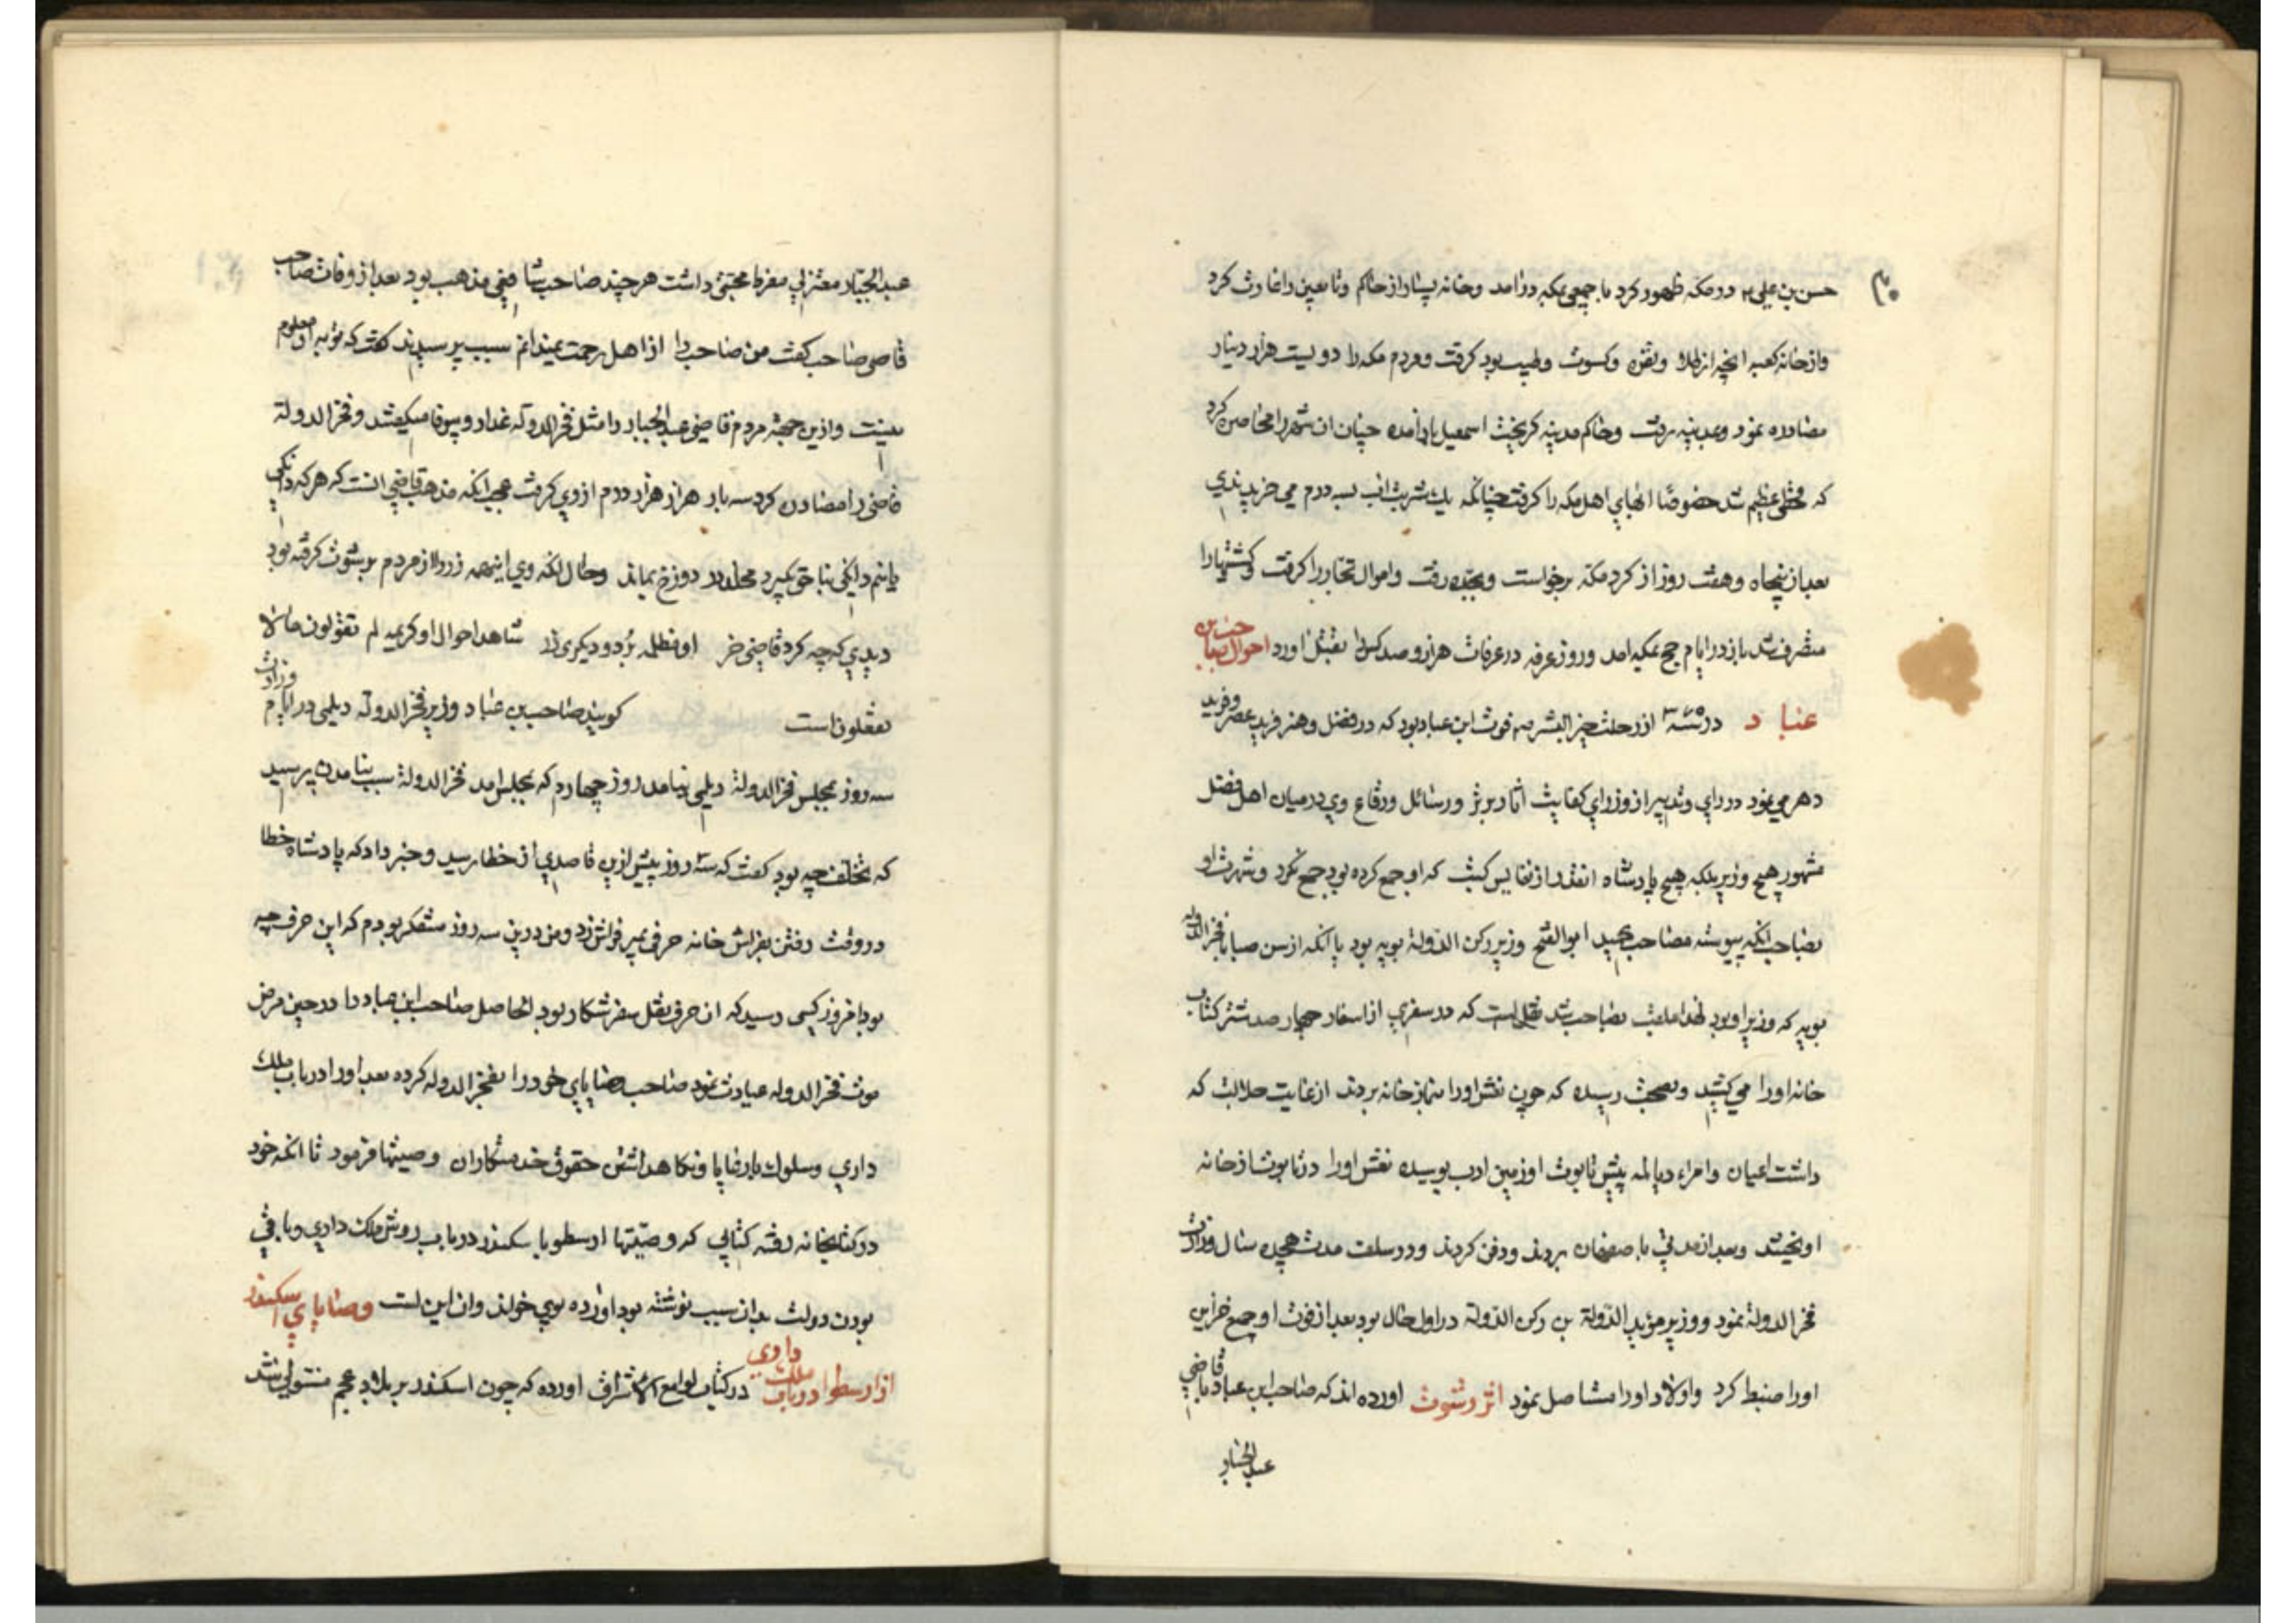 حسن بن علی در مکه ظهور کرد با جمعی بمکه درآمد وخانه بسیار از حاکم وتابعین را غارت کرد
واز خانه کعبه انچه از طلا ونقره وکسوت وطیب بود کرفت ومردم مکه را دویست هزار دینار
مصادره نمود وبمدینه رفت وحاکم مدینه کریخت اسمعیل باز آمده چنان ان شهر را محاصره کرد
که قحطی عظیم شد خصوصا انهای اهل مکه را کرفت چنانکه یک شربت اب بسه درم می خریدندی
بعد از پنجاه وهفت روز از کرد مکه برخواست وبجده رفت واموال تجار را کرفت وکشتیها را
متصرف شد باز در ایام حج بمکه امد وروز عرفه در عرفات هزار وصد کس را بقتل اورد احوال صاحب بن
عباد در سنه ۳۷۵ از رحلت خیر البشر صم فوت ابن عباد بود که در فضل وهنر فرید عصر و وحید
دهر می نمود در رای وتدبیر از وزرای کفایت اثار برتر ورسائل ورقاع وی در میان اهل فضل
مشهور هیچ وزیر بلکه هیچ پادشاه انقدر از نفایس کتب که او جمع کرده بود جمع نکرد وشهرت او
بصاحب انکه پیوسته مصاحب ابو الفتح وزیر رکن الدولة بویه بود یا انکه از سن صبا با فخر الدوله
بویه که وزیر او بود لهذا ملقب بصاحب شد نقل است که در سفری از اسفار چهار صد شتر کتاب
خانه او را می کشید وبصحت رسیده که چون نعش او را بنماز خانه بردند از غایت جلالت که
داشت اعیان وامراء دیالمه پیش تابوت او زمین ادب بوسیده نعش او را در تابوت از خانه
اویختند وبعد از مدتی باصفهان بردند ودفن کردند ودر سلفت مدت هجده سال وزارت
فخر الدولة نمود ووزیر مؤید الدولة بن رکن الدولة در اول حال بود بعد از فوت او جمع خزاین
او را ضبط کرد واولاد او را مستاصل نمود اثر رشوت اورده اند که صاحب ابن عباد با قاضی
عبد الجبار
عبد الجبار معتزلی مفرط محبتی داشت هر چند صاحب شافعی مذهب بود بعد از وفات صاحب
قاضی صاحب کفت من صاحب را از اهل رحمت نمیدانم سبب پرسیدند کفت که توبه او معلوم
نیست وازین جهته مردم قاضی عبد الجبار را مثل فخر الدوله غدار وبیوفا میکفتند وفخر الدولة
قاضی را مصادره کرد سه بار هزار هزار درم از وی کرفت عجب انکه مذهب قاضی انست که هر که دانکی
یا نیم دانکی بنا حق بکیرد مخلد در دوزخ بماند وحال انکه وی اینهمه زر را از مردم برشوت کرفته بود
دیدی که چه کرد قاضی خر او مظلمه برد و دیکری زر شاهد احوال او کریمه لم تقولون ما لا
تفعلون است کویند صاحب بن عباد وزیر فخر الدولة دیلمی در ایام وزارت
سه روز بمجلس فخر الدولة دیلمی نیامد روز چهارم که بمجلس امد فخر الدولة سبب نیامدن پرسید
که تخلف چه بود کفت که سه روز پیش ازین قاصدی از خطا رسید وخبر داد که پادشاه خطا
در وقت رفتن بفراش خانه حرفی بمیر فراش زد ومن درین سه روز متفکر بودم که این حرف چه
بود امروز کسی رسید که ان حرف نقل سفر شکار بود الحاصل صاحب ابن عباد را در حین مرض
موت فخر الدوله عیادت نمود صاحب وصایای خود را بفخر الدوله کرده بعد او را در باب ملک
داری وسلوک با رعایا ونکاهداشتن حقوق خدمتکاران وصیتها فرمود تا انکه خود
در کتابخانه رفته کتابی که وصیتها ارسطو با سکندر در باب روش ملک داری وباقی
بودن دولت بدان سبب نوشته بود اورده بوی خواند وان این است وصایای اسکندر
از ارسطو در باب ملک داری در کتاب لوامع الاشراق اورده که چون اسکندر بر بلاد عجم مستولی شد